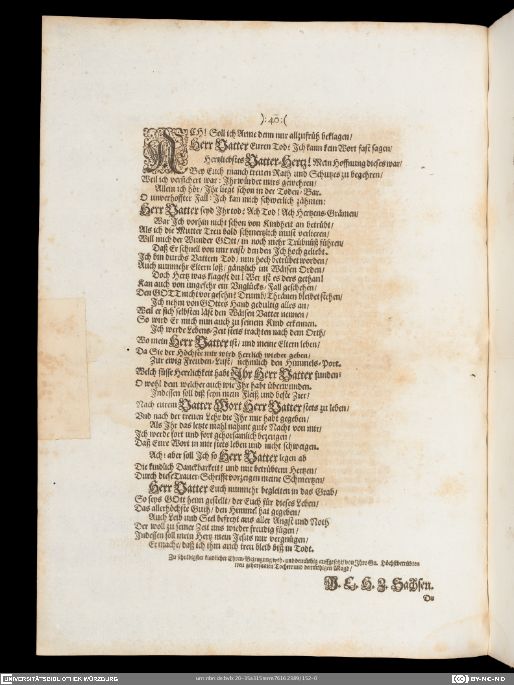 ): 40 :(
ACH! Soll ich Arme denn nur allzufrüh beklagen/
Herr Vatter Euren Tod: Ich kann kein Wort fast sagen/
Hertzliebstes Vatter-Hertz! Mein Hoffnung dieses war/
Bey Euch manch treuen Rath und Schutzes zu begehren/
Weil ich versichert war: Ihr würdet mirs gewehren/
Allein ich hör: Ihr liegt schon in der Toden-Bar.
O unverhoffter Fall: Ich kan mich schwerlich zähmen:
Herr Vatter seyd Ihr tod: Ach Tod! Ach Hertzens-Grämen/
War Ich vorhin nicht schon von Kindheit an betrübt/
Als ich die Mutter Treu bald schmertzlich must verlieren/
Will mich der Wunder GOtt/ in noch mehr Trübnüß führen/
Daß Er schnell von mir reist den Ich hoch geliebt.
Ich bin durchs Vattern Tod/ nun hoch betrübet worden/
Auch nunmehr Eltern loß/ gäntzlich im Wäisen Orden/
Doch Hertz was klagest du! Wer ist es ders gethan!
Kan auch von ungefehr ein Unglücks-Fall geschehen/
Den GOTT nicht vorgesehn! Drumb/ Thränen bleibet stehen/
Ich nehm von GOttes Hand gedultig alles an/
Weil er sich selbsten läst den Wäisen Vatter nennen/
So wird Er mich nun auch zu seinem Kind erkennen.
Ich werde Lebens-Zeit stets trachten nach dem Orth/
Wo mein Herr Vatter ist/ und meine Eltern leben/
Da Sie der Höchste mir wird herrlich wieder geben/
Zur ewig Freuden-Lust/ nehmlich den Himmels-Port.
Welch süsse Herrlichkeit habt Ihr Herr Vatter funden:
O wohl dem welcher auch wie Ihr habt überwunden.
Indessen soll diß seyn mein Fleiß und beste Zier/
Nach eurem Vatter Wort Herr Vatter stets zu leben/
Und nach der treuen Lehr die Ihr mir habt gegeben/
Als Ihr das letzte mahl nahmt gute Nacht von mir/
Ich werde fort und fort gehorsamlich bezeugen/
Daß Eure Wort in mir stets leben und nicht schweigen.
Ach: aber soll Ich so Herr Vatter legen ab
Die kindlich Danckbarkeit! und mit betrübtem Hertzen/
Durch diese Trauer-Schrifft vorzeigen meine Schmertzen/
Herr Vatter Euch nunmehr begleiten in das Grab/
So seys GOtt heim gestellt/ der Euch für dieses Leben/
Das allerhöchste Guth/ den Himmel hat gegeben/
Auch Leib und Seel befreyt aus aller Angst und Noth
Der woll zu seiner Zeit uns wieder freudig fügen/
Indessen soll mein Hertz mein JEsus nur vergnügen/
Er mache/ daß ich ihm auch treu bleib biß in Todt.
Zu schuldigster kindlicher Ehren-Bezeugung weh- und demüthig auffgesetzt/ von Ihro Gn. Höchstbetrübten
treu gehorsamen Tochter und demüthigen Magd/
S. Sachsen.
Du
UNIVERSITÄTSBIBLIOTHEK WÜRZBURG
CC BY-NC-ND